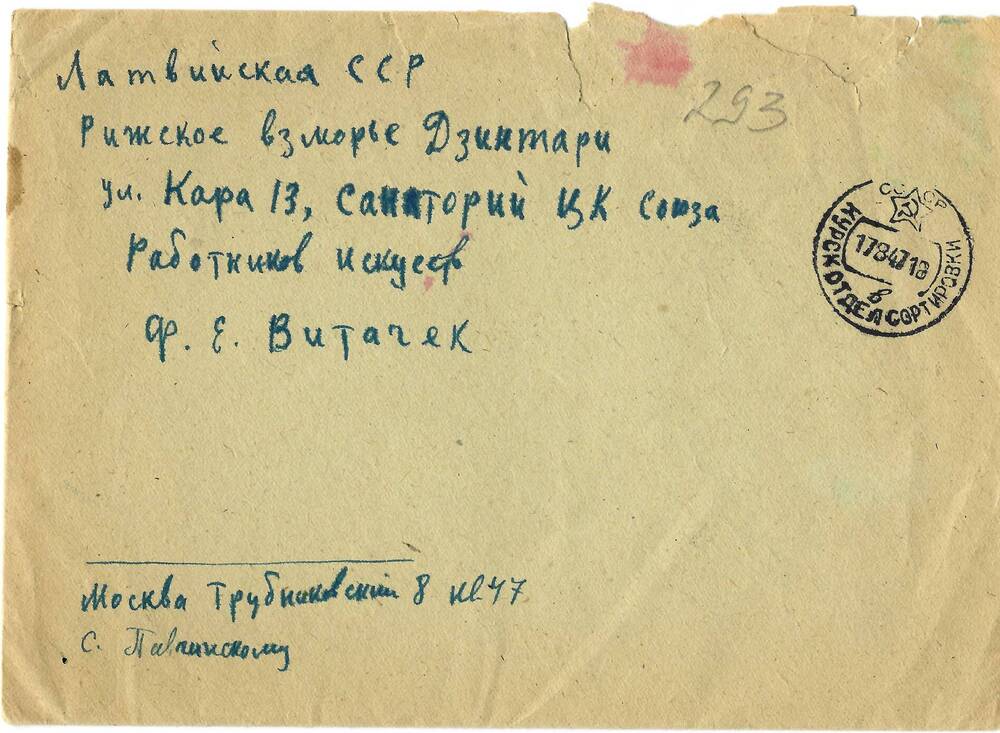 Латвийская ССР
293
Рижское взморье Дзинтари
ул. Кара 13, Санаторий ЦК Союза
Работников Искуств
Ф. Е. Витачек
СССР
КУРСК ОТДЕЛ СОРТИРОВКИ
17 8 47 18
в
Москва Трубниковский 8 кв 47
С. Павчинскому